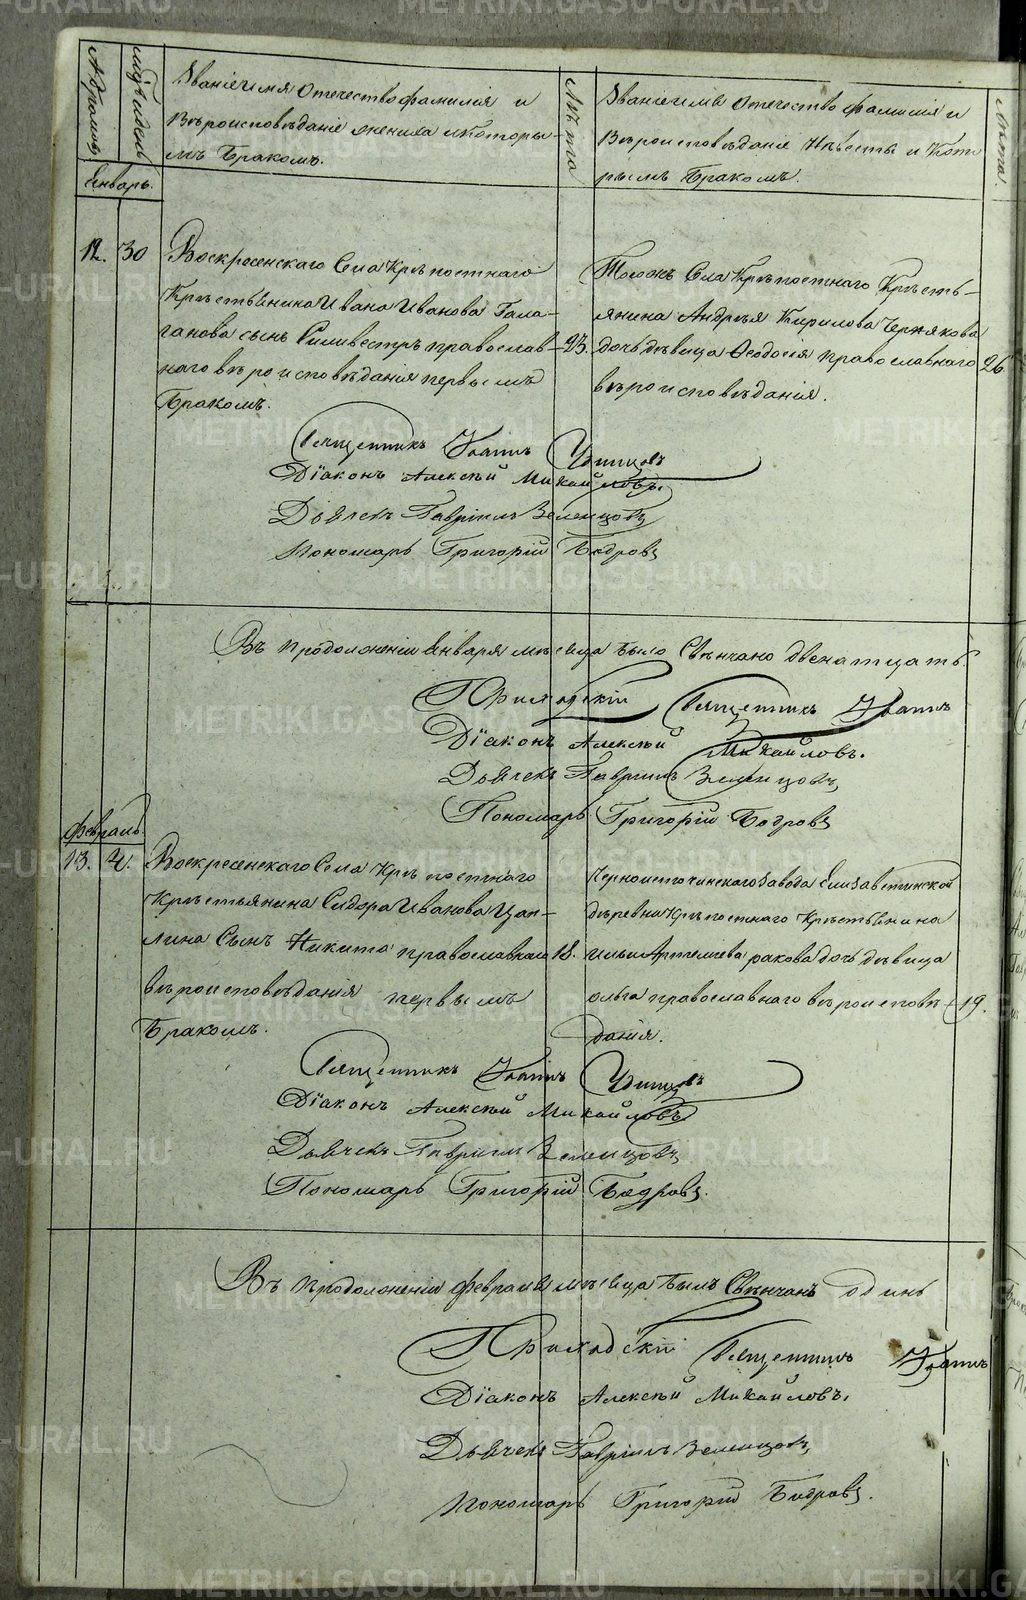 METRIKI.GASO-URAL.RU
Званіе имя Отечество фамилія и
Вѣроисповѣданіе жениха и которы-
мъ Бракомъ.
Лѣта
Званіе имя Отечество фамилія и
Вѣроисповѣданіе Невѣсты и Кото
рымъ Бракомъ.
Лѣта.
Январь.
12. 30
Воскресенскаго Села Крѣпостнаго
Крѣстьянина Ивана Иванова Гала-
ганова сынъ Сильвестръ православ-
наго вѣроисповѣданія первымъ
Бракомъ.
23.
Тогожъ Села Крѣпостнаго Крѣсть-
янина Андрѣя Кирилова Чернякова
дочь дѣвица Ѳеодосія православнаго
вѣроисповѣданія.
26.
Священникъ Іоаннъ Удинцовъ
Діаконъ Алексѣй Михайловъ.
Дьячекъ Гавріилъ Зеленцовъ
Пономарь Григорій Бодровъ
Въ продолженіи Января мѣсяца было Свѣнчано двенатцать.
Приходскій Священникъ Іоаннъ
Діаконъ Алексѣй Михайловъ.
Дьячекъ Гавріилъ Зеленцовъ
Пономарь Григорій Бодровъ
Февраль.
13. 4.
Воскресенскаго Села Крѣпостнаго
Крѣстьянина Сидора Иванова Цап-
лина Сынъ Никита православнаго
вѣроисповѣданія первымъ
Бракомъ.
18.
Черноисточинскаго Завода Елизаветинской
дѣревни Крѣпостнаго Крѣстьянина
Ильи Артемьева ракова дочь дѣвица
ольга православнаго вѣроисповѣ-
данія.
19.
Священникъ Іоаннъ Удинцовъ
Діаконъ Алексѣй Михайловъ
Дьячекъ Гавріилъ Зеленцовъ
Пономарь Григорій Бодровъ.
Въ продолженіи Февраля мѣсяца былъ Свѣнчанъ одинъ
Приходскій Священникъ Іоаннъ
Діаконъ Алексѣй Михайловъ.
Дьячекъ Гавріилъ Зеленцовъ
Пономарь Григорій Бодровъ.